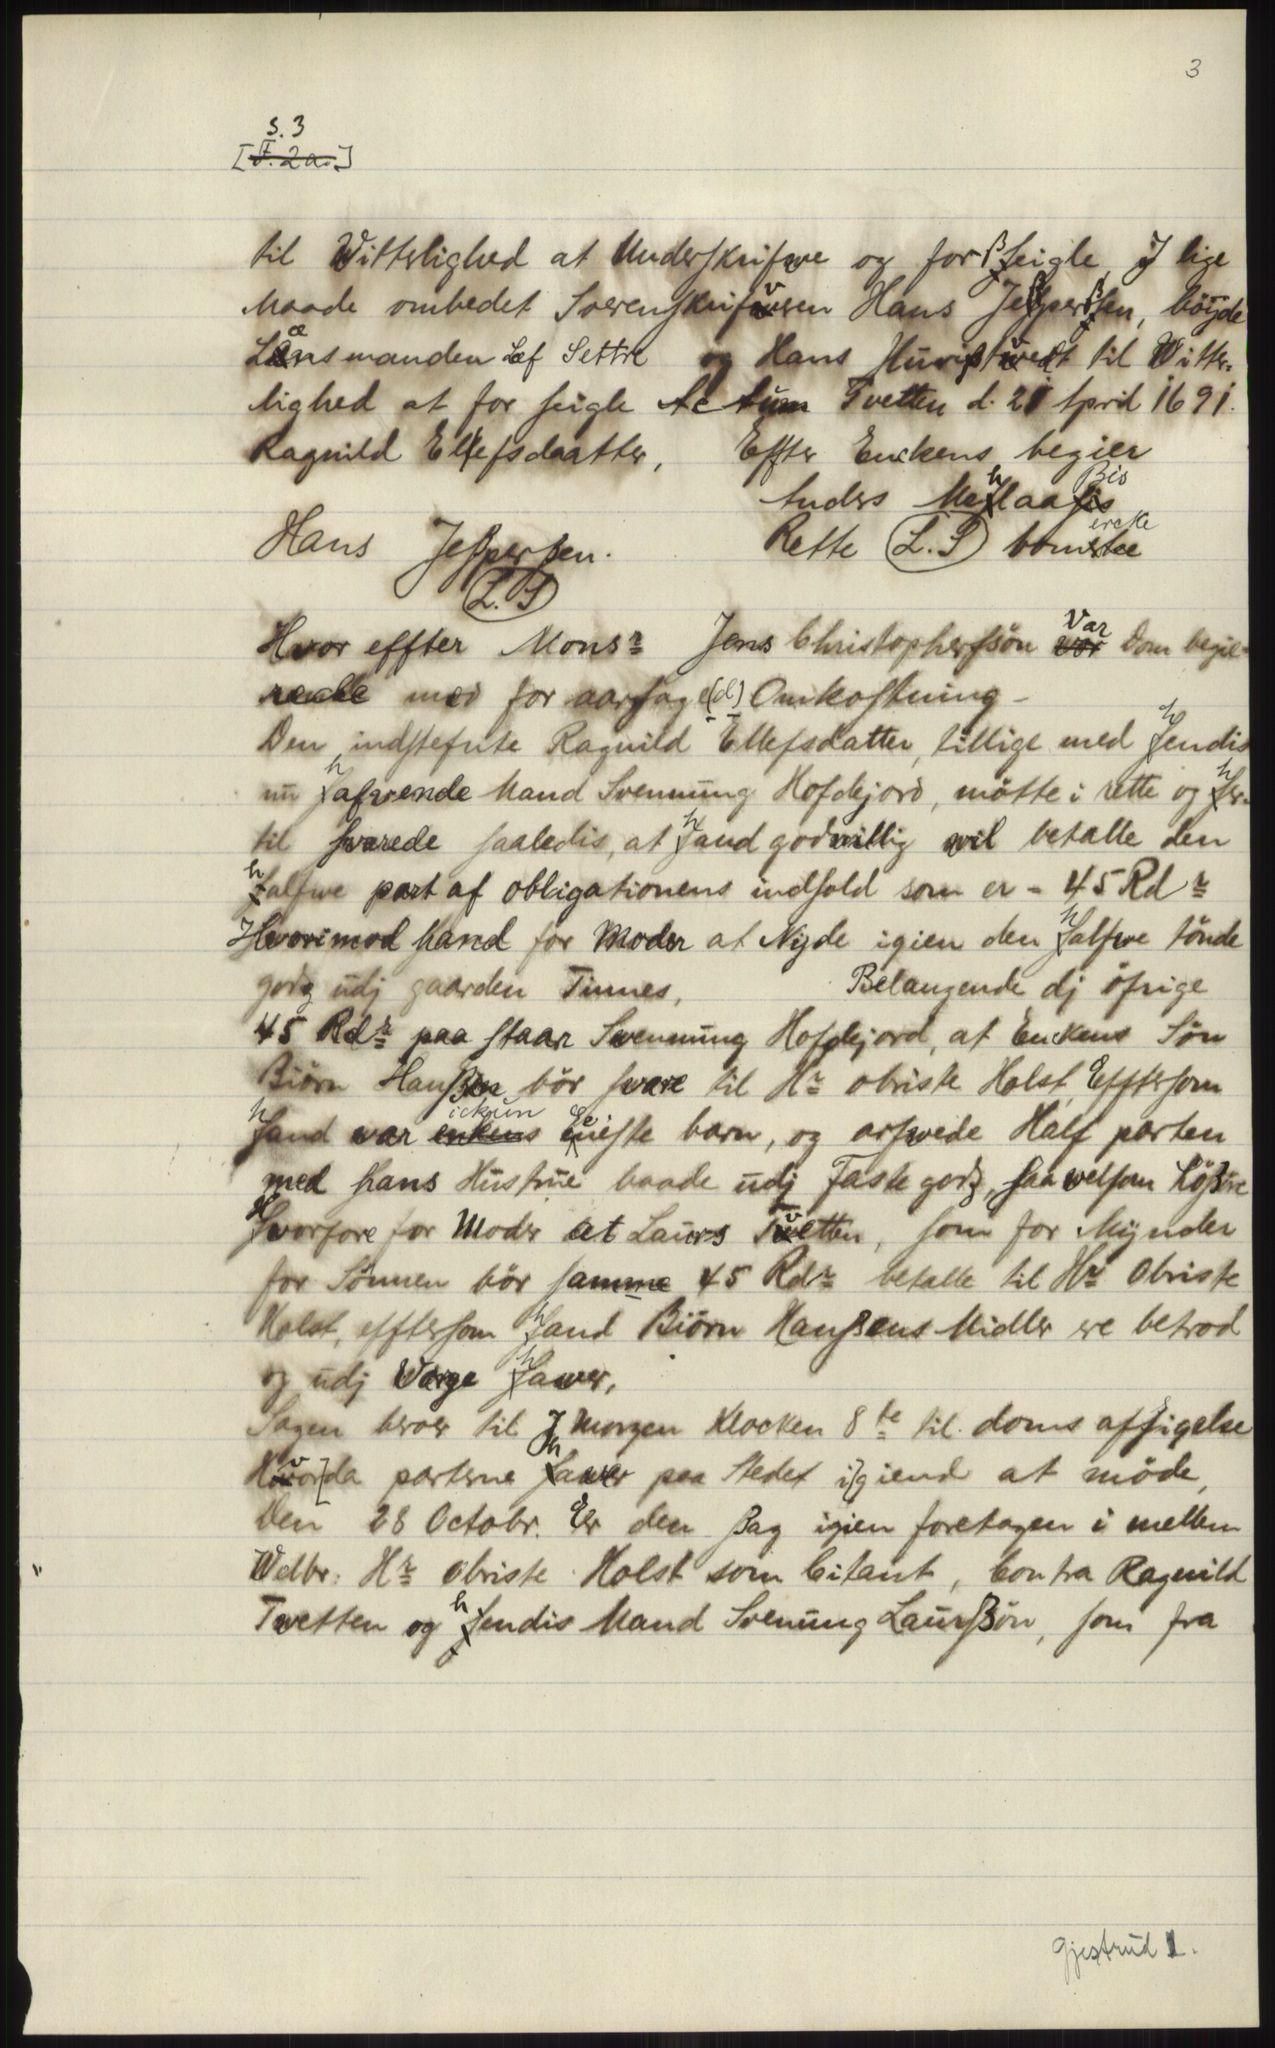 3
S. 3
[F. 2a.]
til Witterlighed at Underskrifwe og forßeigle, J lige
Maade ombedet Sorenskrifveren Hans Jeßperßen, böÿde
Lænsmanden Lef Settre og Hans til Witter-
lighed at for seigle Actum Tvetten d. 21 April 1691.
Ragnild Ellefsdaatter, Effter Enckens begier
Anders Bio
Hans Jeßperßen. Rette (L. S) bomercke
(L. S)
Hvor effter Monsr Jens Christophersön Var Dom begie-
rende med for aarsage(d) Omkostning -
Den indstefnte Ragnild Ellefsdatter, tillige med hendis
nu hafwende Mand Svennung Hofdejord, mötte i rette og her-
til svarede saaledis, at hand godvillig vil betalle den
halfwe part af obligationens indhold som er - 45 Rdr
Hvorimod hand for Moder at Nyde igien den halfwe tönde
godz udj gaarden Tinnes, Belangende dj öfrige
45 Rdr paa staar Svennung Hofdejord, at Enckens Sön
Biörn Hanßen bör svare til Hr obriste Holst, Efftersom
hand war ickun eeneste barn, og arfwede Half parten
med hans Hustrue baade udj Faste godz, saa welsom Lößöre
Hvorfore for Moder at Laurs Tvetten, som for Mynder
for Sönnen bör samme 45 Rdr betalle til Hr Obriste
Holst, efftersom hand Biörn Hanßens Midler ere betrod
og udj Værge hawer,
Sagen beroer til J Morgen Klocken 8te til doms affsigelse
Hvor]da parterne hawer paa Stedet i]giend at möde,
Den 28 Octobr. Er den ßag igien foretagen i mellem
Welbr: Hr obriste Holst som Citant, Contra Ragnild
Tvetten og hendis Mand Svenung Laursßön, som fra
Gjestrud 1.